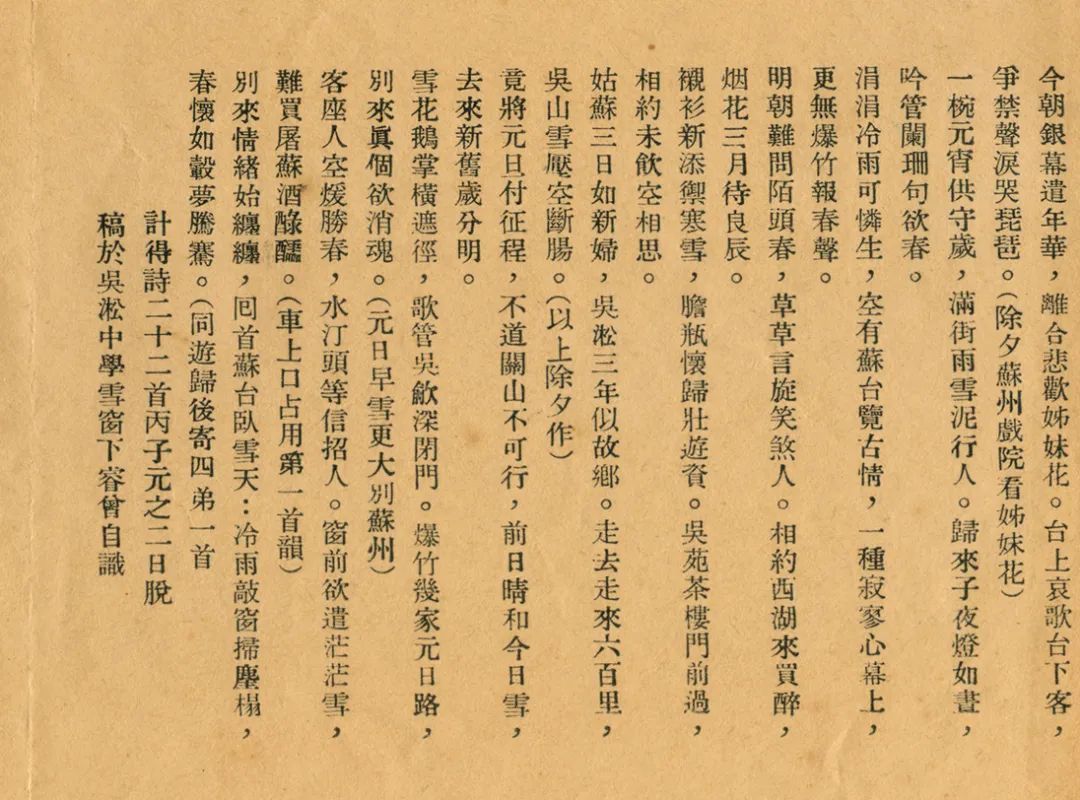 今朝銀幕遣年華，離合悲歡姊妹花。台上哀歌台下客，
爭禁聲淚哭琵琶。（除夕蘇州戲院看姊妹花）
一椀元宵供守歲，滿街雨雪泥行人。歸來子夜燈如晝，
吟管闌珊句欲春。
涓涓冷雨可憐生，空有蘇台覽古情，一種寂寥心幕上，
更無爆竹報春聲。
明朝難問陌頭春，草草言旋笑煞人。相約西湖來買醉，
烟花三月待良辰。
襯衫新添禦寒雪，膽瓶懷歸壯遊資。吳苑茶樓門前過，
相約未飲空相思。
姑蘇三日如新婦，吳淞三年似故鄉。走去走來六百里，
吳山雪壓空斷腸。（以上除夕作）
竟將元旦付征程，不道關山不可行，前日晴和今日雪，
去來新舊歲分明。
雪花鵝掌橫遮徑，歌管吳歈深閉門。爆竹幾家元日路，
別來眞個欲消魂。（元日早雪更大別蘇州）
客座人空煖勝春，水汀頭等信招人。窗前欲遣茫茫雪，
難買屠蘇酒醁醽。（車上口占用第一首韻）
別來情緒始纏纏，囘首蘇台臥雪天：冷雨敲窗掃塵榻，
春懷如縠夢騰騫。（同遊歸後寄四弟一首
計得詩二十二首丙子元之二日脫
稿於吳淞中學雪窗下睿曾自識